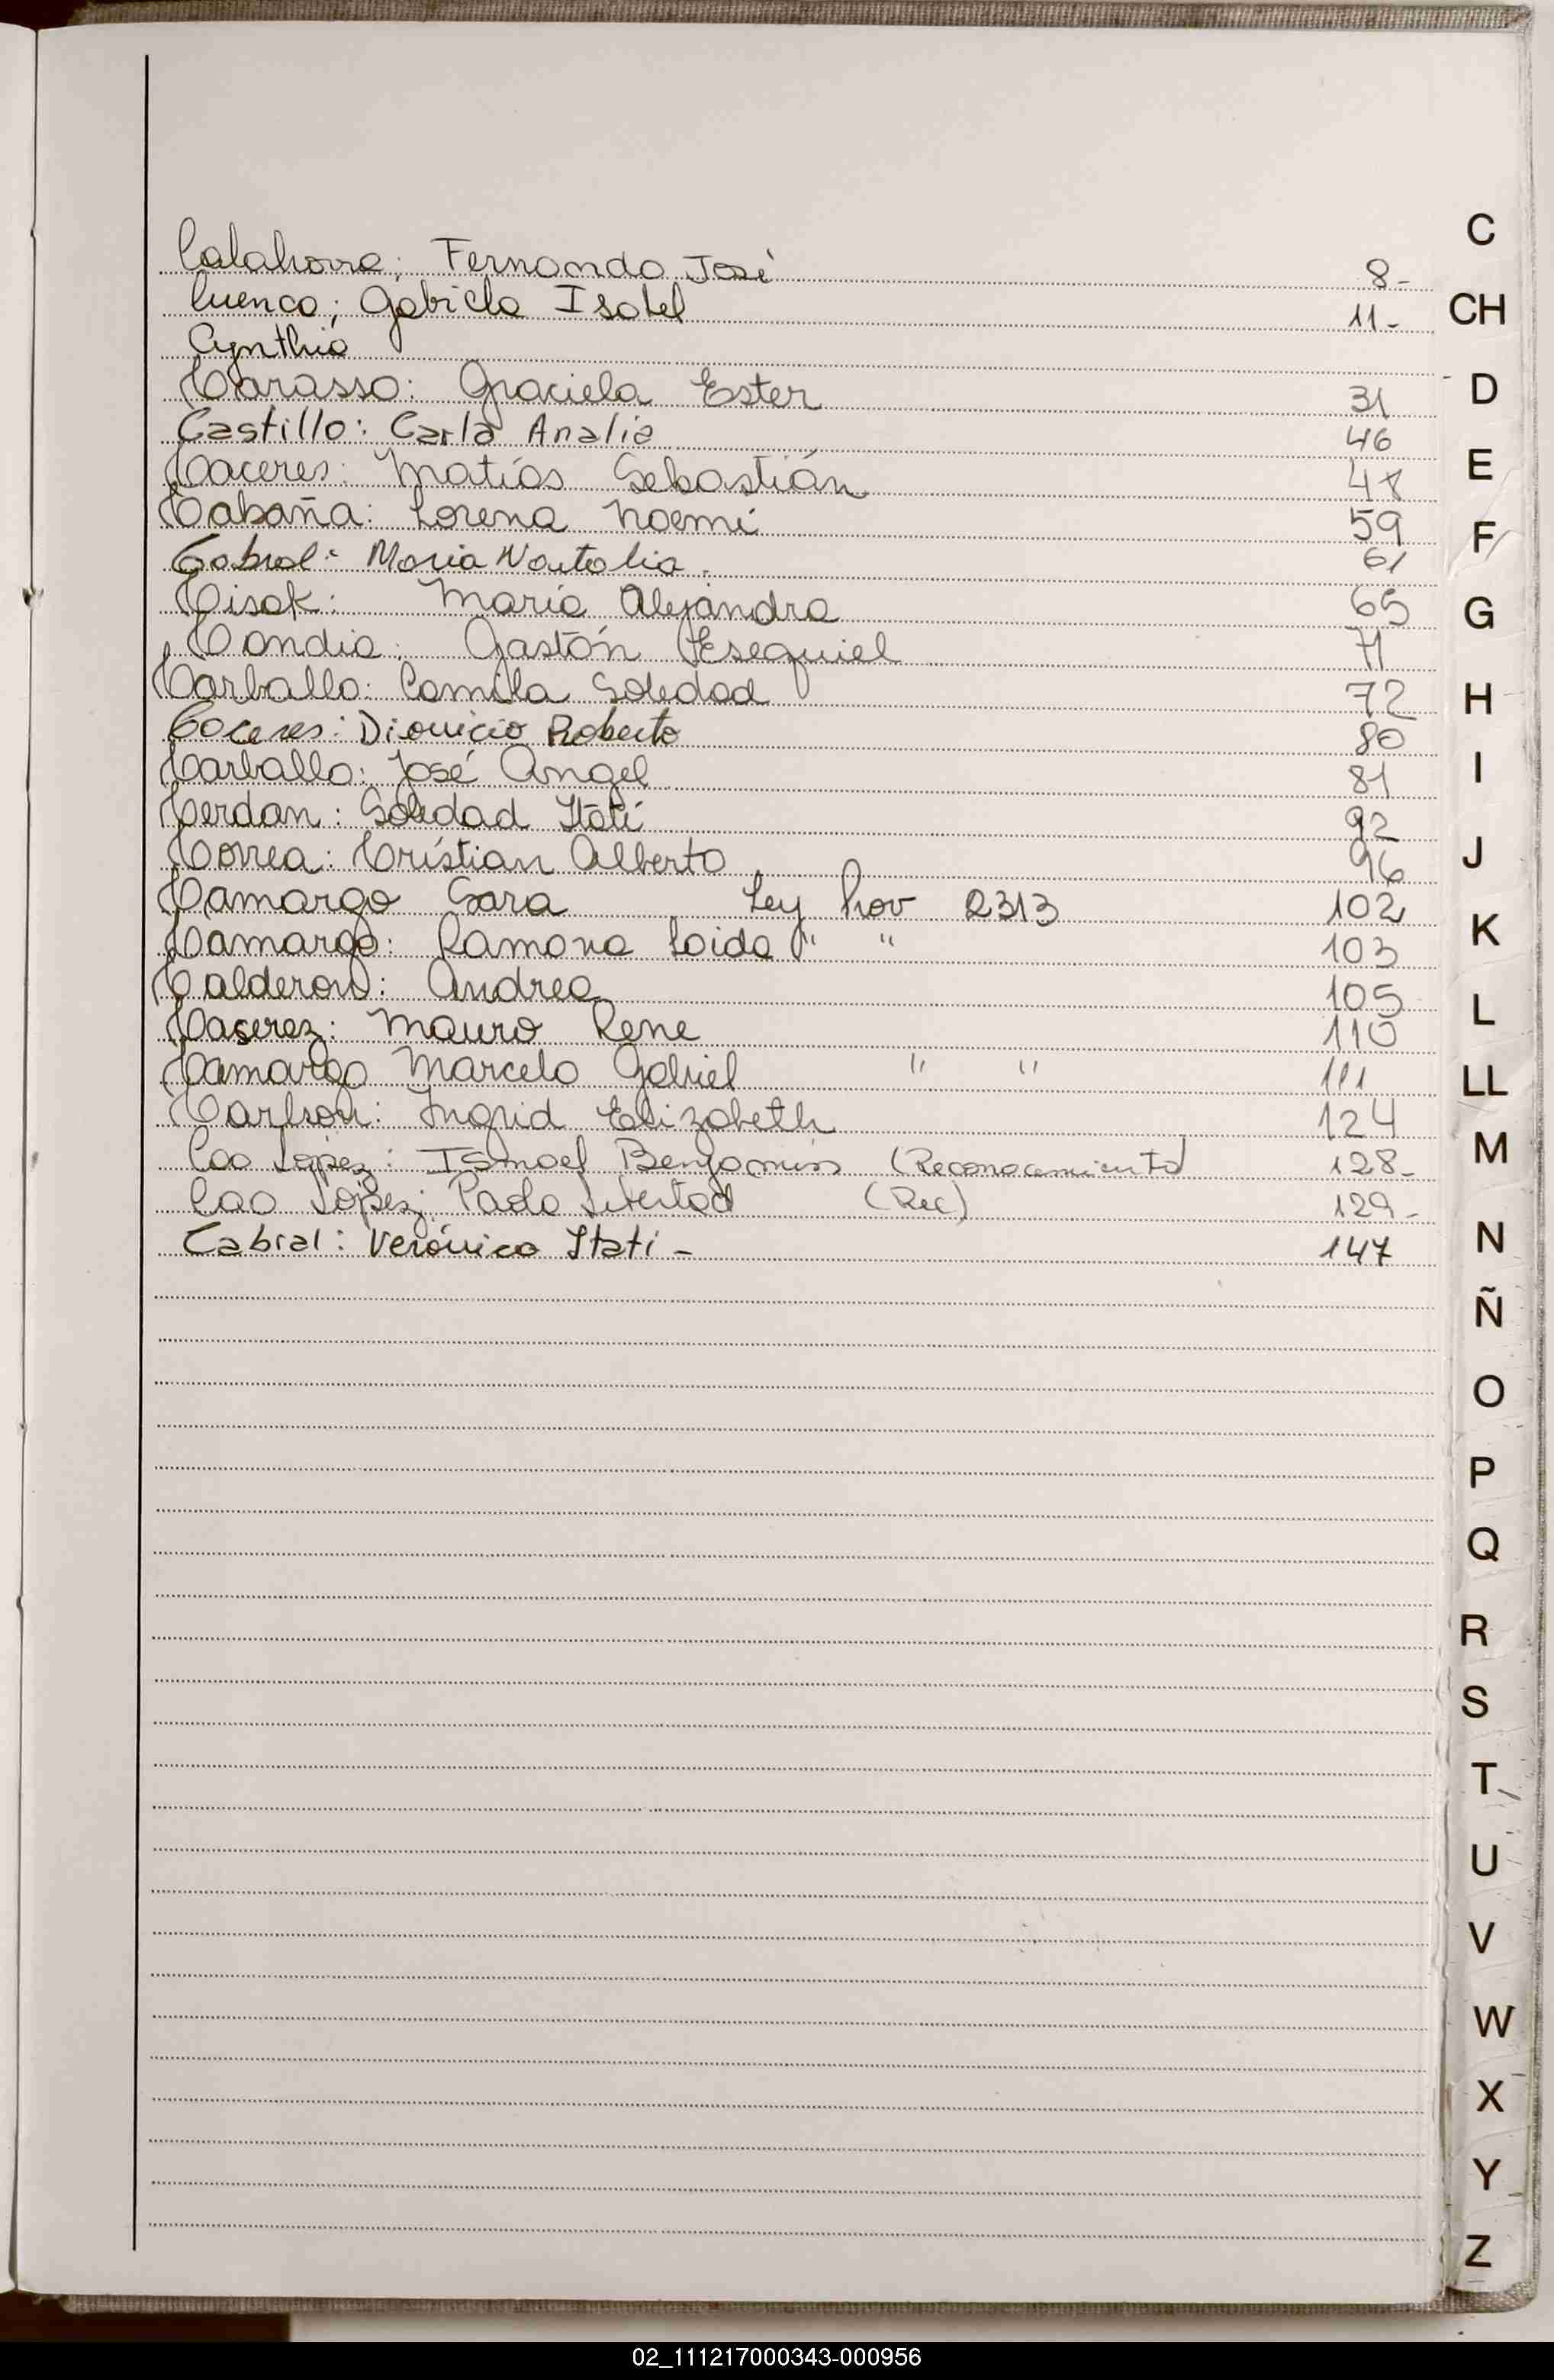 Calahorra; Fernando José 8-
Cuenca; Gabriela Isabel 11-
Cynthia
Carasso: Graciela Ester 31
Castillo: Carla Analia 46
Caceres: Matías Sebastián 47
Cabaña: Lorena Noemí 59
Cabral: Maria Natalia. 61
Cisak: María Alejandra 65
Candia: Gastón Esequiel 71
Carballo: Camila Soledad 72
Caceres: Dionicio Roberto 80
Carballo: José Angel 81
Cerdan: Soledad Itatí 92
Correa: Cristian Alberto 96
Camargo Sara Ley Prov 2313 102
Camargo: Ramona Loida " " 103
Calderon: Andrea 105
Caserez: Mauro Rene 110
Camargo Marcelo Gabriel " " 111
Carlson: Ingrid Elizabeth 124
Cao López: Ismael Benjamin (Reconocimiento) 128-
Cao López: Paola Libertad (Rec) 129-
Cabral: Verónica Itatí - 147
C
CH
D
E
F
G
H
I
J
K
L
LL
M
N
Ñ
O
P
Q
R
S
T
U
V
W
X
Y
Z
02_111217000343-000956